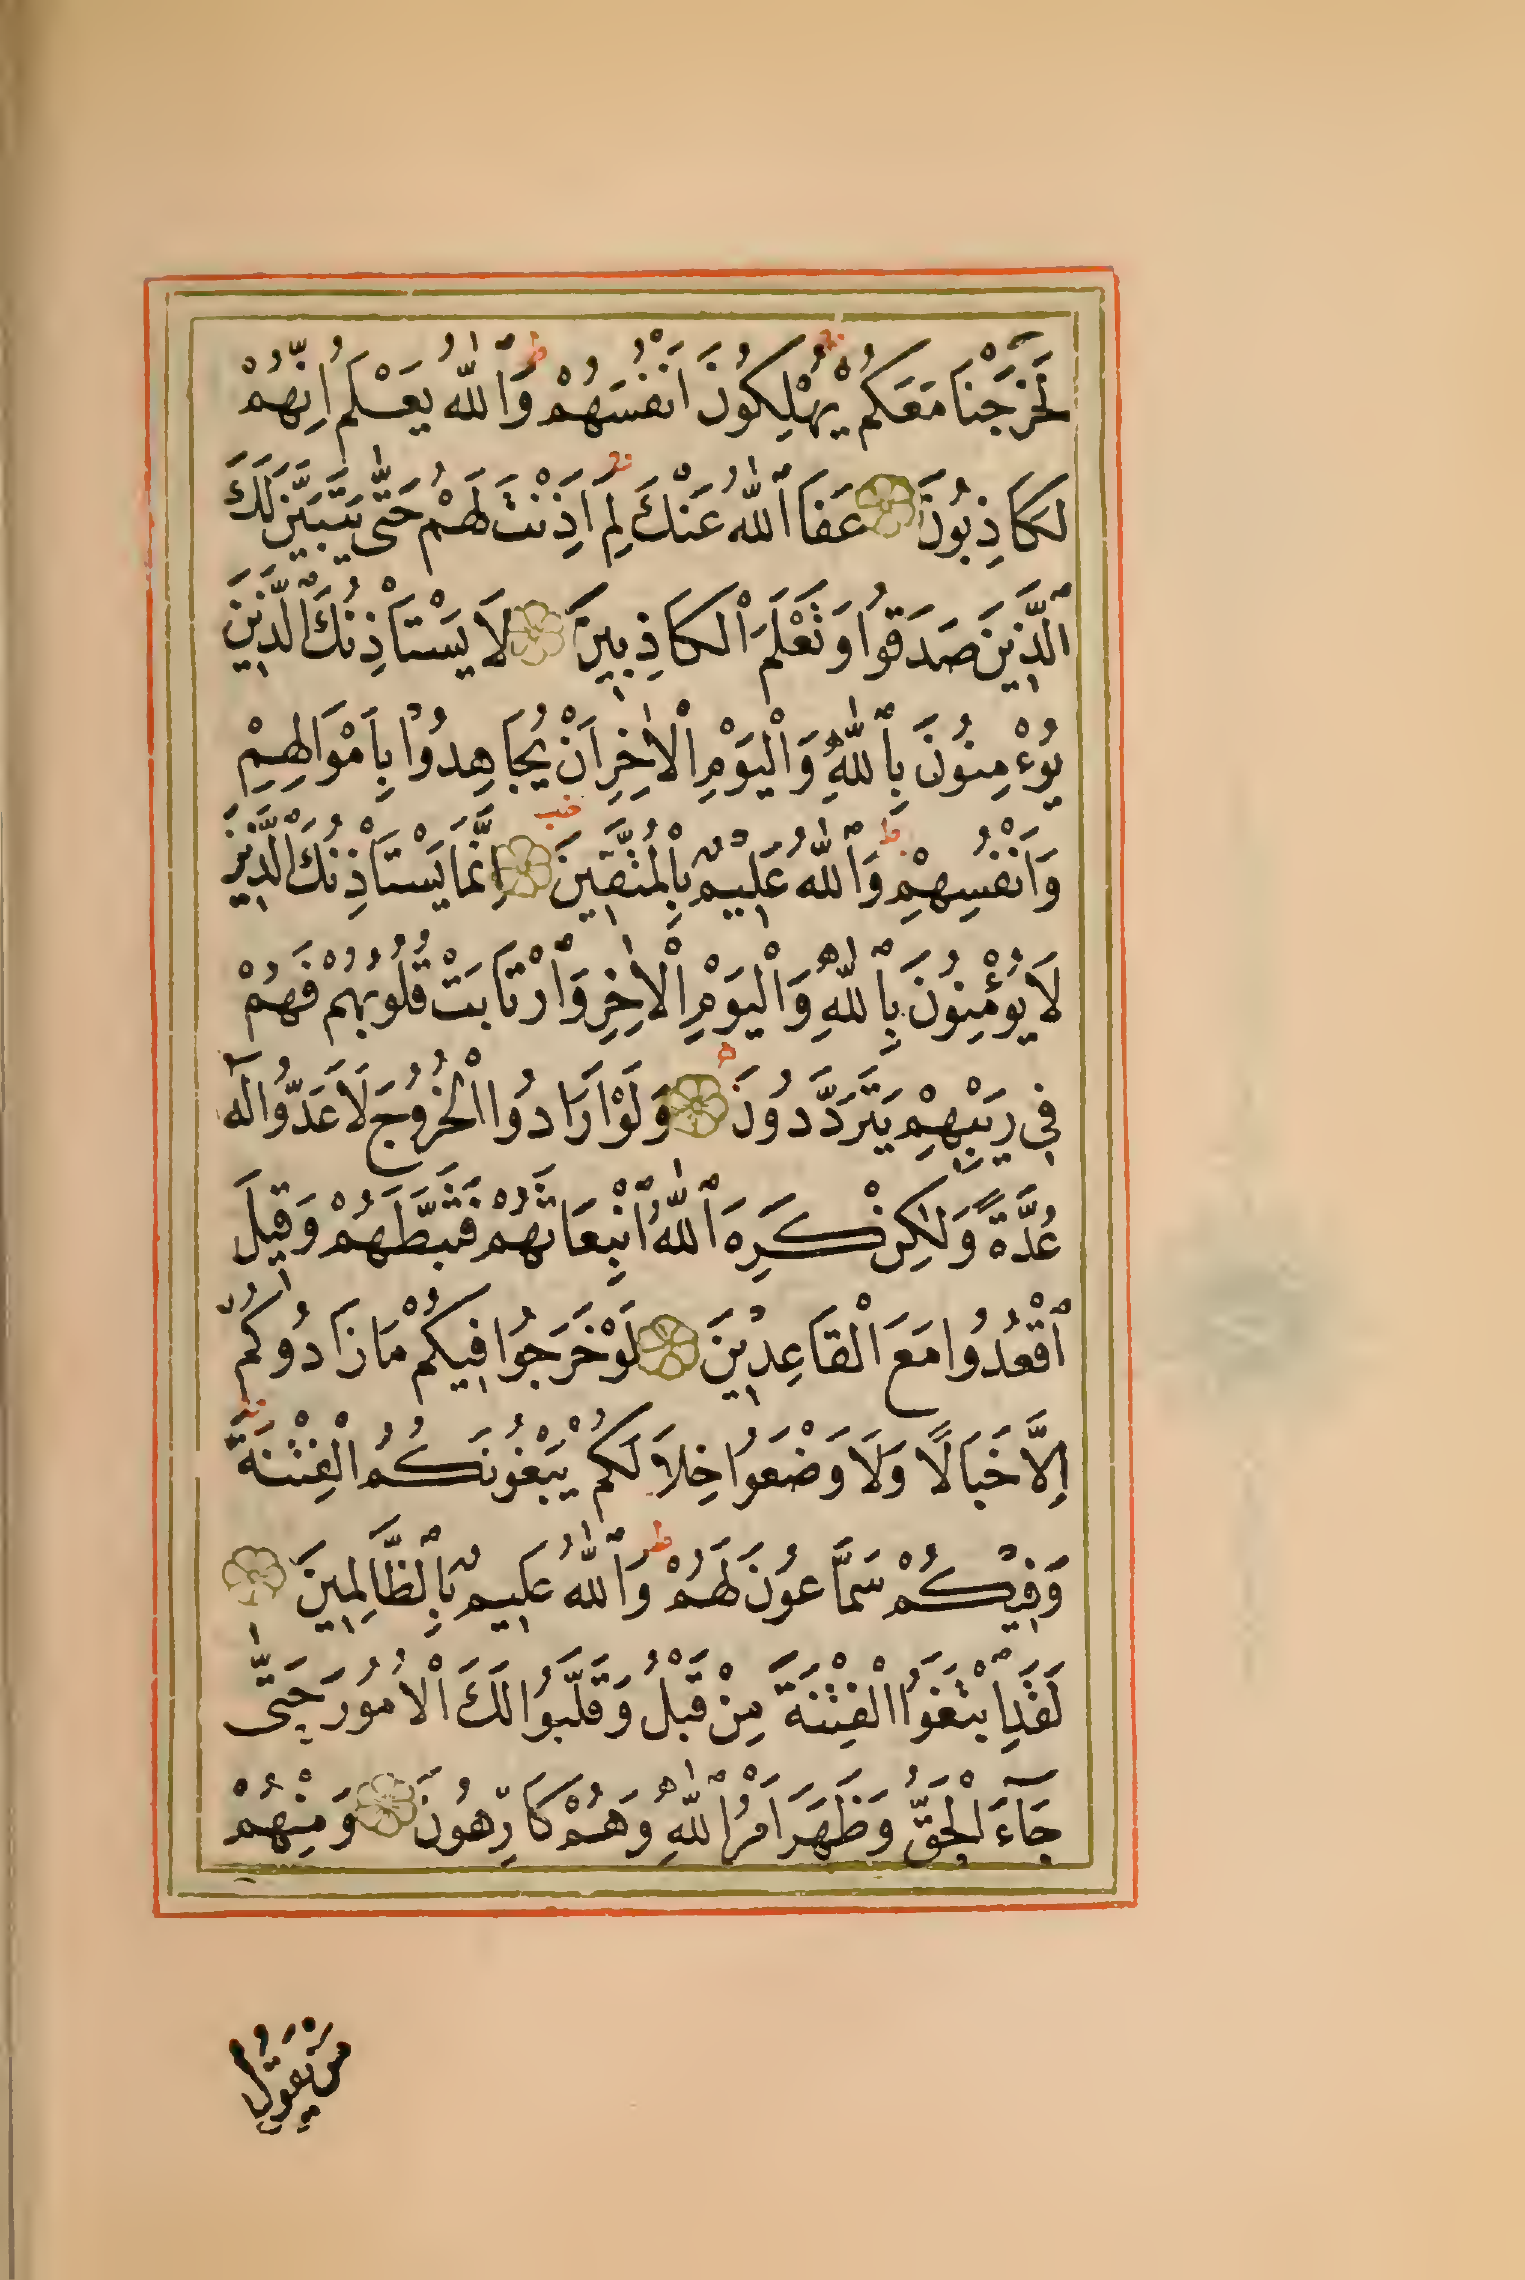 لَخَرَجْنَا مَعَكُمْ يُهْلِكُونَ اَنْفُسَهُمْ وَٱللّٰهُ يَعْلَمُ اِنَّهُمْ
لَكَاذِبُونَ عَفَا ٱللّٰهُ عَنْكَ لِمَ اَذِنْتَ لَهُمْ حَتّٰى يَتَبَيَّنَ لَكَ
ٱلَّذِينَ صَدَقُوا وَتَعْلَمَ ٱلْكَاذِبِينَ لَا يَسْتَاْذِنُكَ ٱلَّذِينَ
يُوءْمِنُونَ بِٱللّٰهِ وَٱلْيَوْمِ ٱلْاٰخِرِ اَنْ يُجَاهِدُوا بِاَمْوَالِهِمْ
وَاَنْفُسِهِمْ وَٱللّٰهُ عَلِيمٌ بِٱلْمُتَّقِينَ اِنَّمَا يَسْتَاْذِنُكَ ٱلَّذِينَ
لَا يُؤْمِنُونَ بِٱللّٰهِ وَٱلْيَوْمِ ٱلْاٰخِرِ وَٱرْتَابَتْ قُلُوبُهُمْ فَهُمْ
فِى رَيْبِهِمْ يَتَرَدَّدُونَ وَلَوْ اَرَادُوا ٱلْخُرُوجَ لَاَعَدُّوا لَهُ
عُدَّةً وَلٰكِنْ كَرِهَ ٱللّٰهُ ٱنْبِعَاثَهُمْ فَثَبَّطَهُمْ وَقِيلَ
ٱقْعُدُوا مَعَ ٱلْقَاعِدِينَ لَوْ خَرَجُوا فِيكُمْ مَا زَادُوكُمْ
اِلَّا خَبَالًا وَلَاَوْضَعُوا خِلَالَكُمْ يَبْغُونَكُمُ ٱلْفِتْنَةَ
وَفِيكُمْ سَمَّاعُونَ لَهُمْ وَٱللّٰهُ عَلِيمٌ بِٱلظَّالِمِينَ
لَقَدِ ٱبْتَغَوُا ٱلْفِتْنَةَ مِنْ قَبْلُ وَقَلَّبُوا لَكَ ٱلْاُمُورَ حَتّٰى
جَآءَ ٱلْحَقُّ وَظَهَرَ اَمْرُ ٱللّٰهِ وَهُمْ كَارِهُونَ وَمِنْهُمْ
مَنْ يَقُولُ